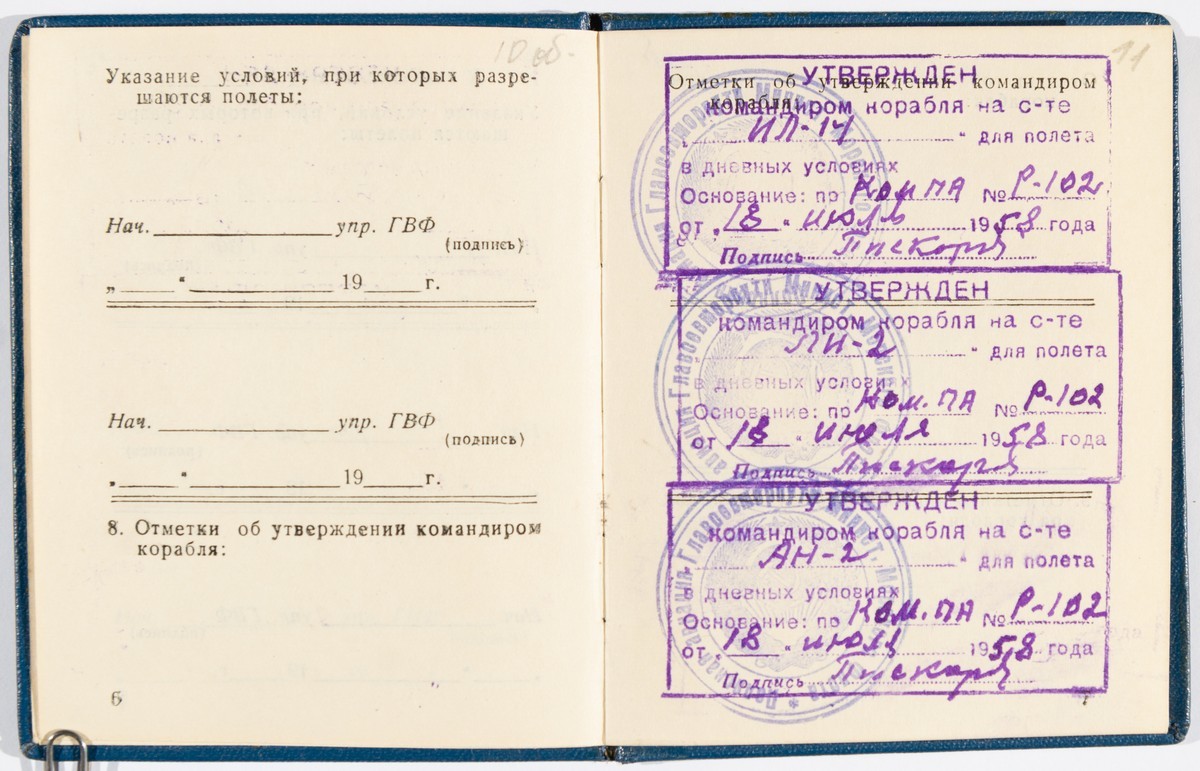 10 об.
Указание условий, при которых разре-
шаются полеты:
Нач. упр. ГВФ
(подпись)
„ “ 19 г.
Нач. упр. ГВФ
(подпись)
„ “ 19 г.
8. Отметки об утверждении командиром
корабля:
6
11
УТВЕРЖДЕН
Отметки об утверждении командиром
корабля:
командиром корабля на с-те
„ ИЛ-14 “ для полета
в дневных условиях
Основание: пр Ком ПА № Р-102
от „18“ июля 1958 года
Подпись Пискарёв
УТВЕРЖДЕН
командиром корабля на с-те
ЛИ-2 “ для полета
в дневных условиях
Основание: пр Ком. ПА № Р-102
от 18 “ июля 1958 года
Подпись Пискарёв
УТВЕРЖДЕН
командиром корабля на с-те
„ АН-2 “ для полета
в дневных условиях
Основание: пр Ком. ПА № Р-102
от „18“ июля 1958 года
Подпись Пискарёв
7